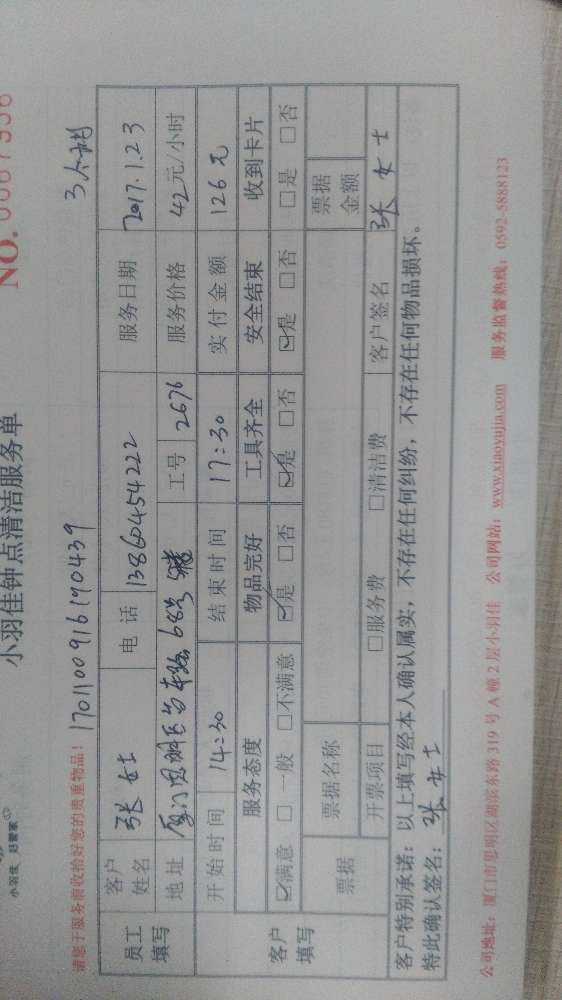 小羽佳 好管家
小羽佳钟点清洁服务单
NO.
请您于服务前收拾好您的贵重物品！ 1701100916190439 3小时
员工填写 客户姓名 张女士 电话 13860454222 服务日期 2017.1.23
地址 厦门思明区 68号 工号 2676 服务价格 42元/小时
客户填写 开始时间 14:30 结束时间 17:30 实付金额 126元
服务态度 物品完好 工具齐全 安全结束 收到卡片
☑满意 □一般 □不满意 ☑是 □否 ☑是 □否 ☑是 □否 □是 □否
票据 票据名称 票据金额
开票项目 □服务费 □清洁费 客户签名 张女士
客户特别承诺：以上填写经本人确认属实，不存在任何纠纷，不存在任何物品损坏。
特此确认签名：张女士
公司地址：厦门市思明区湖滨东路319号A幢2层小羽佳 公司网站：www.xiaoyujia.com 服务监督热线：0592-5888123